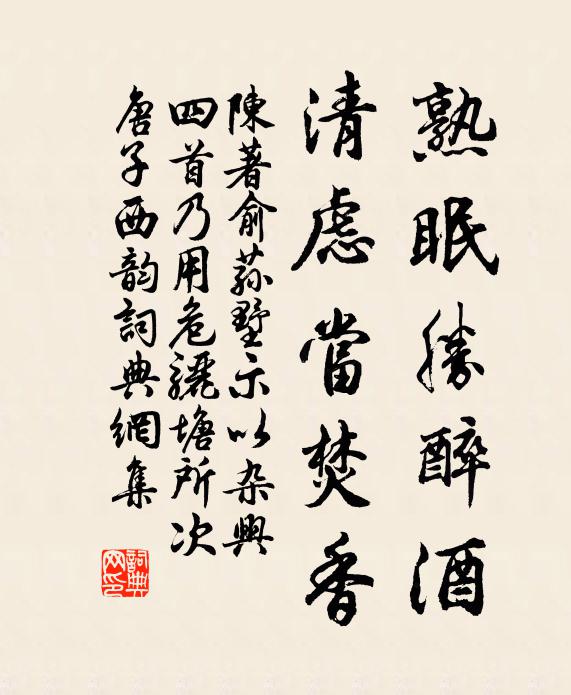 熟眠勝醉酒
清慮當焚香
陳著俞荪墅示以杂興
四首乃用危驪塘所次
唐子西韵詞典網集
詞典网印